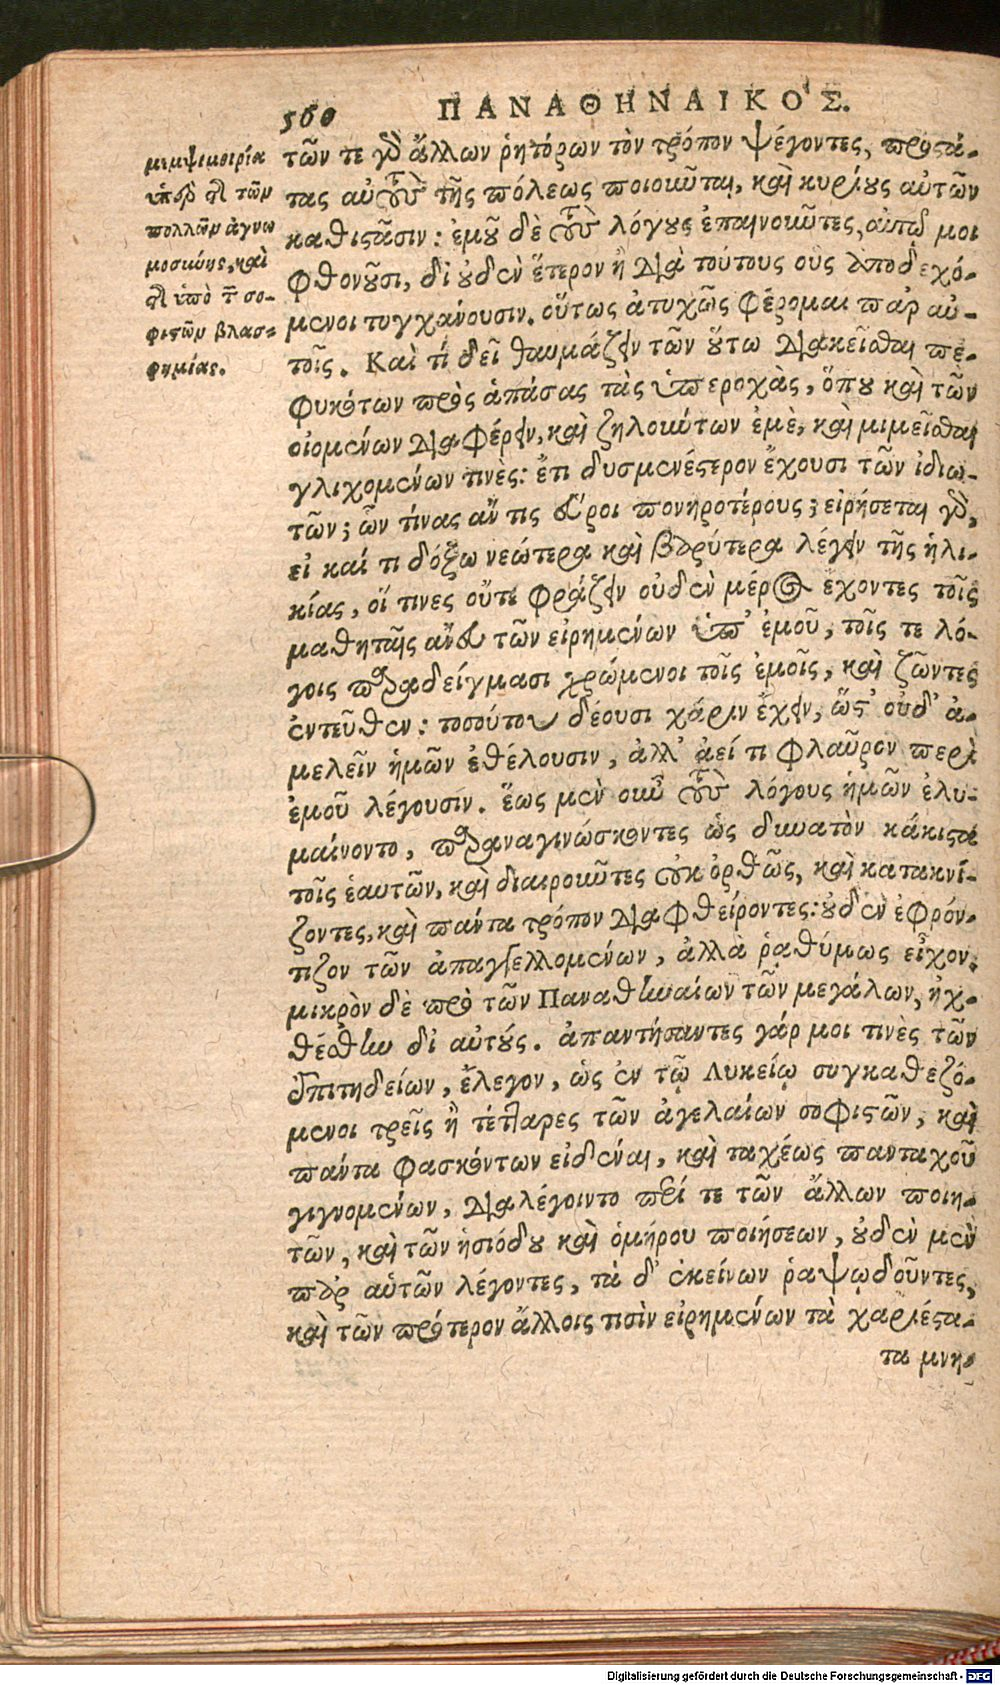 560
ΠΑΝΑΘΗΝΑΙΚΟ'Σ.
μεμψιμοιρία
ὑπὲρ τ τῶν
πολλῶν ἀγνω
μοσύνης, καὶ
τ ὑπὸ τ σο-
φιστῶν βλασ-
φημίας.
τῶν τε γὸ ἄλλων ῥητόρων τὸν τρόπον ψέγοντες, προστά-
τας αὐτοὺς τῆς πόλεως ποιοῦνται, καὶ κυρίους αὐτῶν
καθιστᾶσιν: ἐμοῦ δὲ τοὺς λόγους ἐπαινοῦντες, αὐτῷ μοι
φθονοῦσι, δι' οὐδὲν ἕτερον ἢ διὰ τούτους οὓς ἀποδεχό-
μενοι τυγχάνουσιν. οὕτως ἀτυχῶς φέρομαι παρ' αὐ-
τοῖς. Καὶ τί δεῖ θαυμάζειν τῶν οὕτω διακεῖσθαι πε-
φυκότων πρὸς ἁπάσας τὰς ὑπεροχὰς, ὅπου καὶ τῶν
οἰομένων διαφέρειν, καὶ ζηλούντων ἐμὲ, καὶ μιμεῖσθαι
γλιχομένων τινὲς: ἔτι δυσμενέστερον ἔχουσι τῶν ἰδιω-
τῶν; ὧν τίνας ἄν τις εὕροι πονηροτέρους; εἰρήσεται γὸ,
εἰ καί τι δόξω νεώτερα καὶ βαρύτερα λέγειν τῆς ἡλι-
κίας, οἵ τινες οὔτε φράζειν οὐδὲν μέρος ἔχοντες τοῖς
μαθηταῖς ἄνευ τῶν εἰρημένων ὑπ' ἐμοῦ, τοῖς τε λό-
γοις παραδείγμασι χρώμενοι τοῖς ἐμοῖς, καὶ ζῶντες
ἐντεῦθεν: τοσούτου δέουσι χάριν ἔχειν, ὥστ' οὐδ' ἀ-
μελεῖν ἡμῶν ἐθέλουσιν, ἀλλ' ἀεί τι φλαῦρον περὶ
ἐμοῦ λέγουσιν. ἕως μὲν οὖν τοὺς λόγους ἡμῶν ἐλυ-
μαίνοντο, παραναγινώσκοντες ὡς δυνατὸν κάκιστα
τοῖς ἑαυτῶν, καὶ διαιροῦντες οὐκ ὀρθῶς, καὶ κατακνί-
ζοντες, καὶ πάντα τρόπον διαφθείροντες: οὐδὲν ἐφρόν-
τιζον τῶν ἀπαγγελλομένων, ἀλλὰ ῥαθύμως εἶχον.
μικρὸν δὲ πρὸ τῶν Παναθηναίων τῶν μεγάλων, ἠχ-
θέσθην δι' αὐτούς. ἀπαντήσαντες γάρ μοι τινὲς τῶν
ἐπιτηδείων, ἔλεγον, ὡς ἐν τῷ Λυκείῳ συγκαθεζό-
μενοι τρεῖς ἢ τέτταρες τῶν ἀγελαίων σοφιστῶν, καὶ
πάντα φασκόντων εἰδέναι, καὶ ταχέως πανταχοῦ
γιγνομένων, διαλέγοιντο περί τε τῶν ἄλλων ποιη-
τῶν, καὶ τῶν ἡσιόδου καὶ ὁμήρου ποιήσεων, οὐδὲν μὲν
παρ' αὑτῶν λέγοντες, τὰ δ' ἐκείνων ῥαψῳδοῦντες,
καὶ τῶν πρότερον ἄλλοις τισὶν εἰρημένων τὰ χαριέστα-
τα μνη-
Digitalisierung gefördert durch die Deutsche Forschungsgemeinschaft - DFG